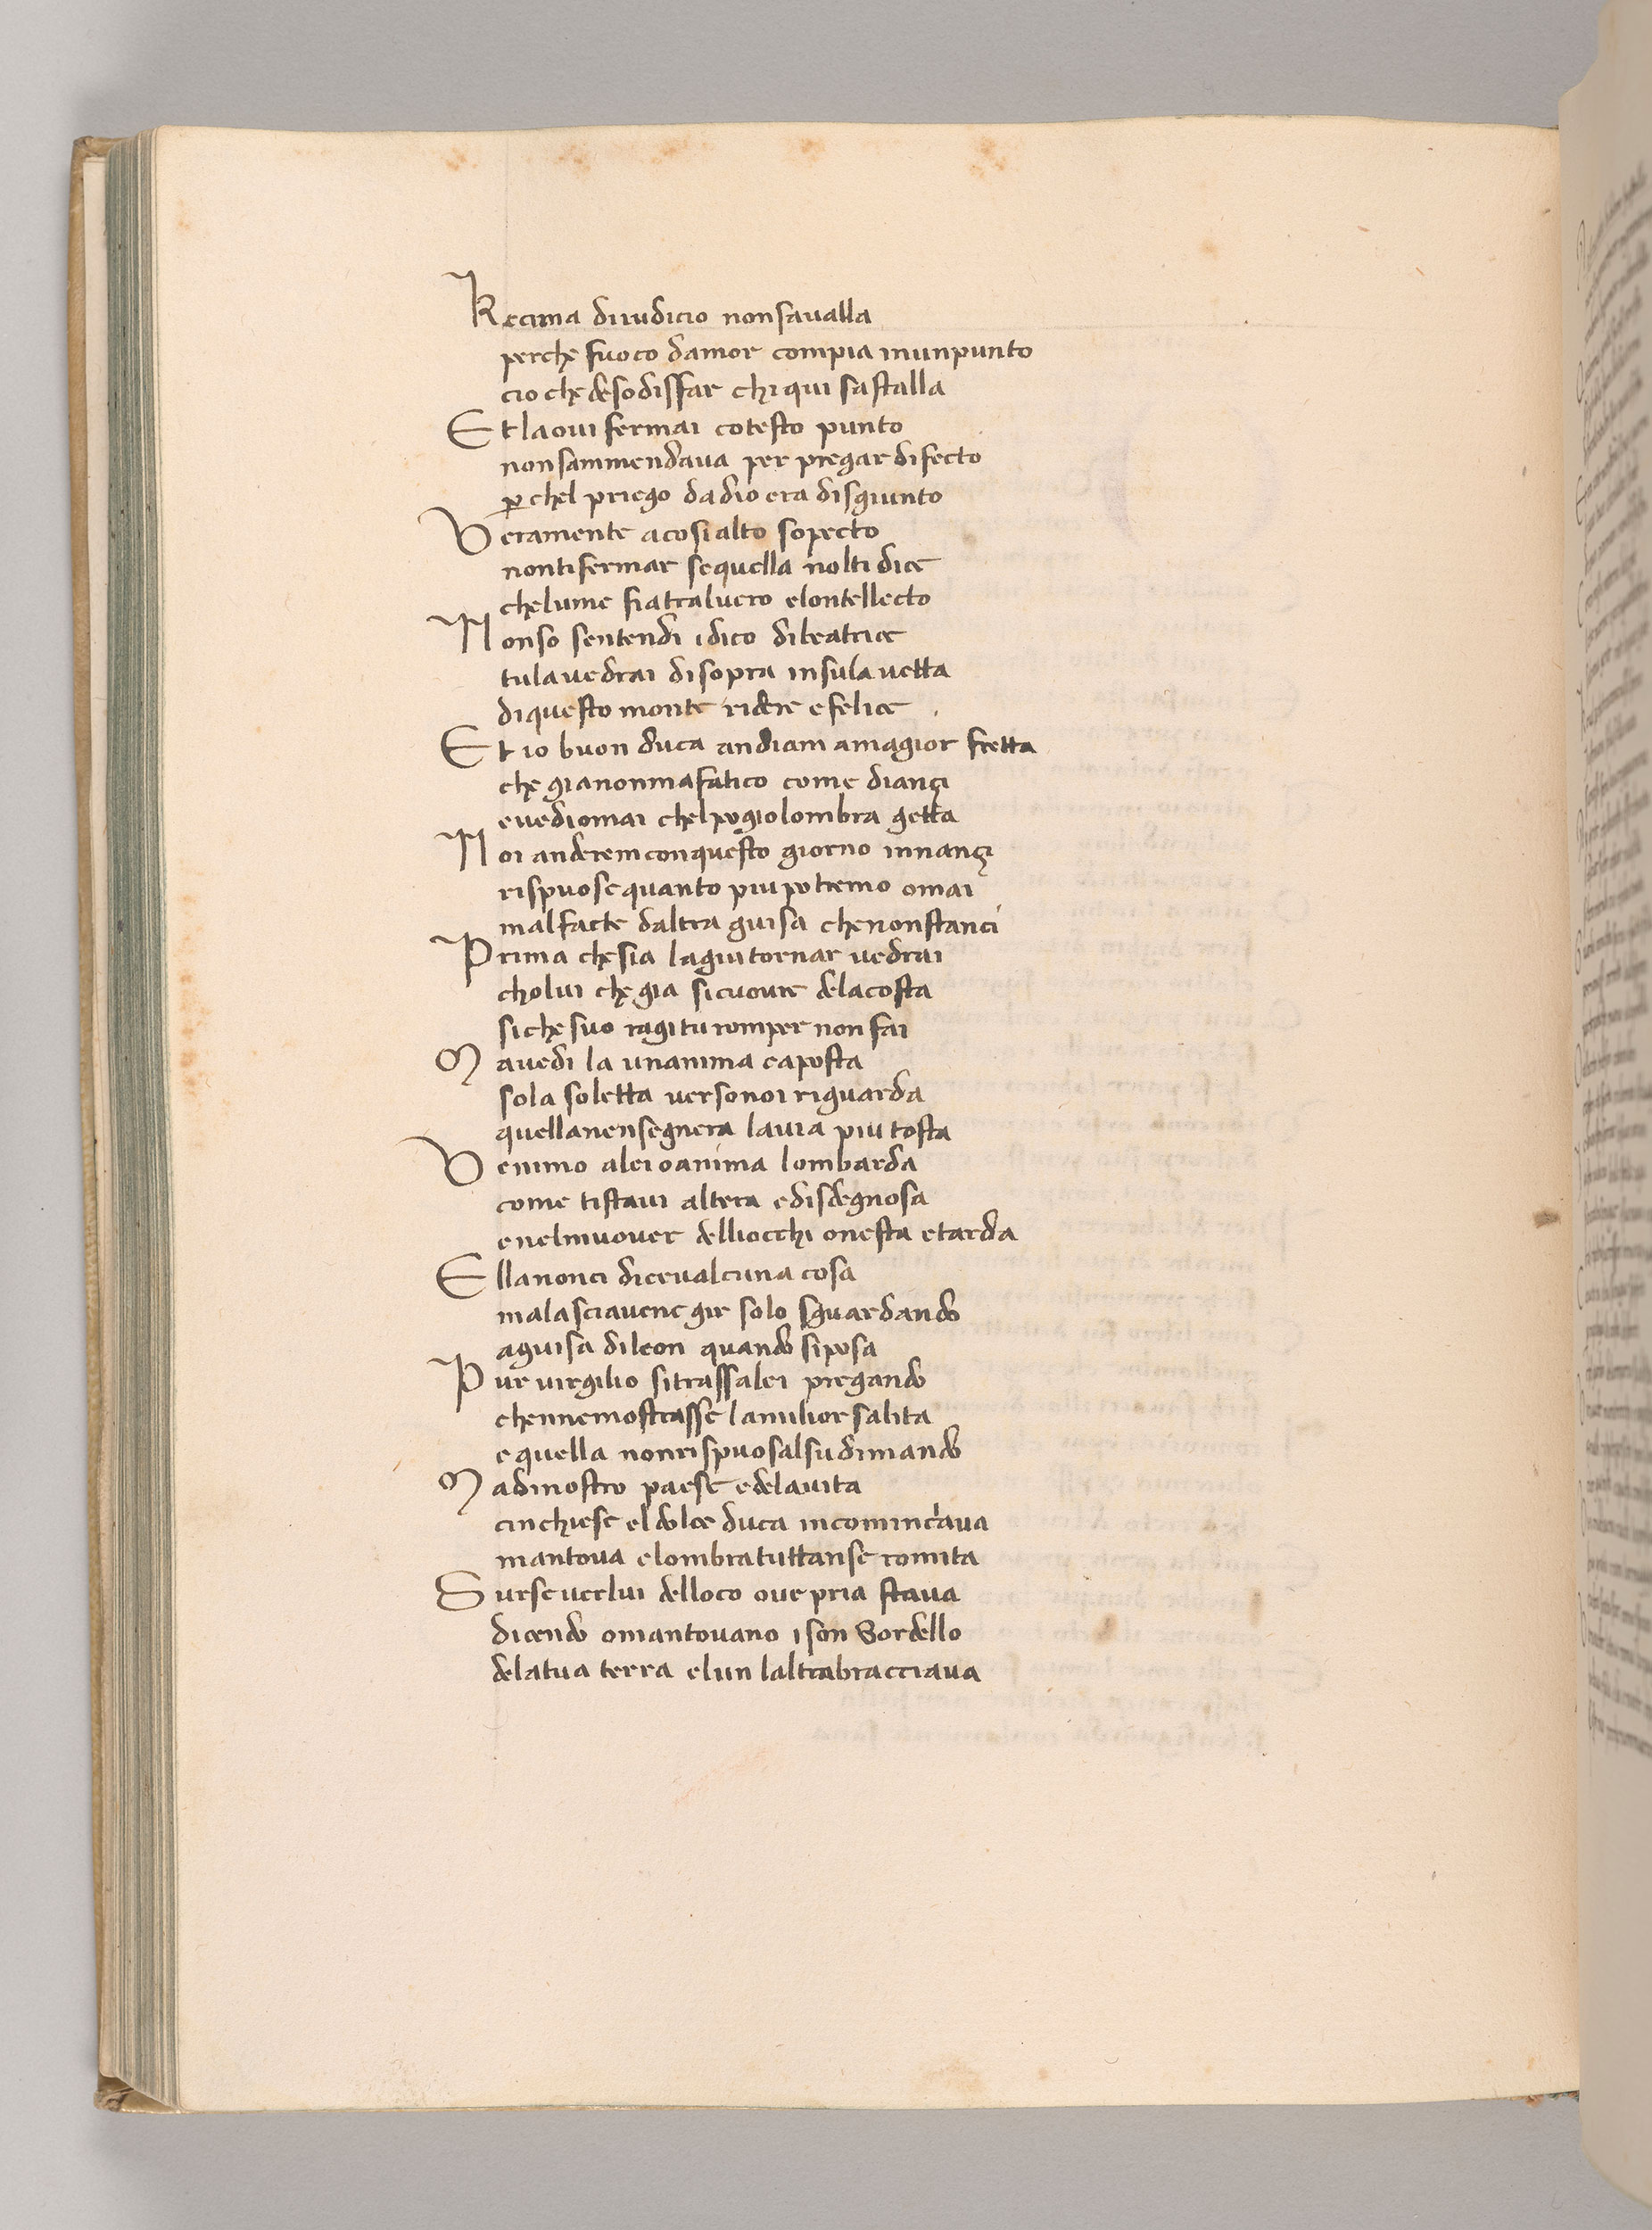 Kecima diiudicio nonsaualla
perche fuoco damor compia inunpunto
cio che desodisfar chi qui sastalla
Et la oui fermai cotesto punto
nonsammendaua per pregar difecto
perchel priego da dio era disgiunto
Veramente acosi alto sopecto
nontifermar sequella nolti dice
chelume fiatraluero elontellecto
Nonso sentendi idico dibeatrice
tulauedrai disopra insula uetta
diquesto monte ridere efelice
Et io buon duca andiam amagior fretta
che gianonmafatico come diançi
euediomai chelpogiolombra getta
Noi anderemconquesto giorno innançi
rispuosequanto piupotremo omai
malfacte daltra guisa chenonstanci
Prima chesia lagiutornar uedrai
cholui che gia sicuoure delacosta
siche suo ragi tu romper non fai
Mauedi la unanima caposta
sola soletta uersonoi riguarda
quellanensegnera lauia piu tosta
Venimo alei oanima lombarda
come tistaui altera edisdegnosa
enelmuouer delliocchi onesta etarda
Ellanonci diceualcuna cosa
malasciauene gir solo sguardando
aguisa dileon quando siposa
Pur uirgilio sitrassalei pregando
chennemostrasse lamilior salita
equella nonrispuosalsudimando
Madinostro paese edelauita
cinchiese el dolce duca incominciaua
mantoua elombratuttanse romita
Surseuerlui delloco oue pria staua
dicendo omantouano ison Sordello
delatua terra elun laltrabracciaua